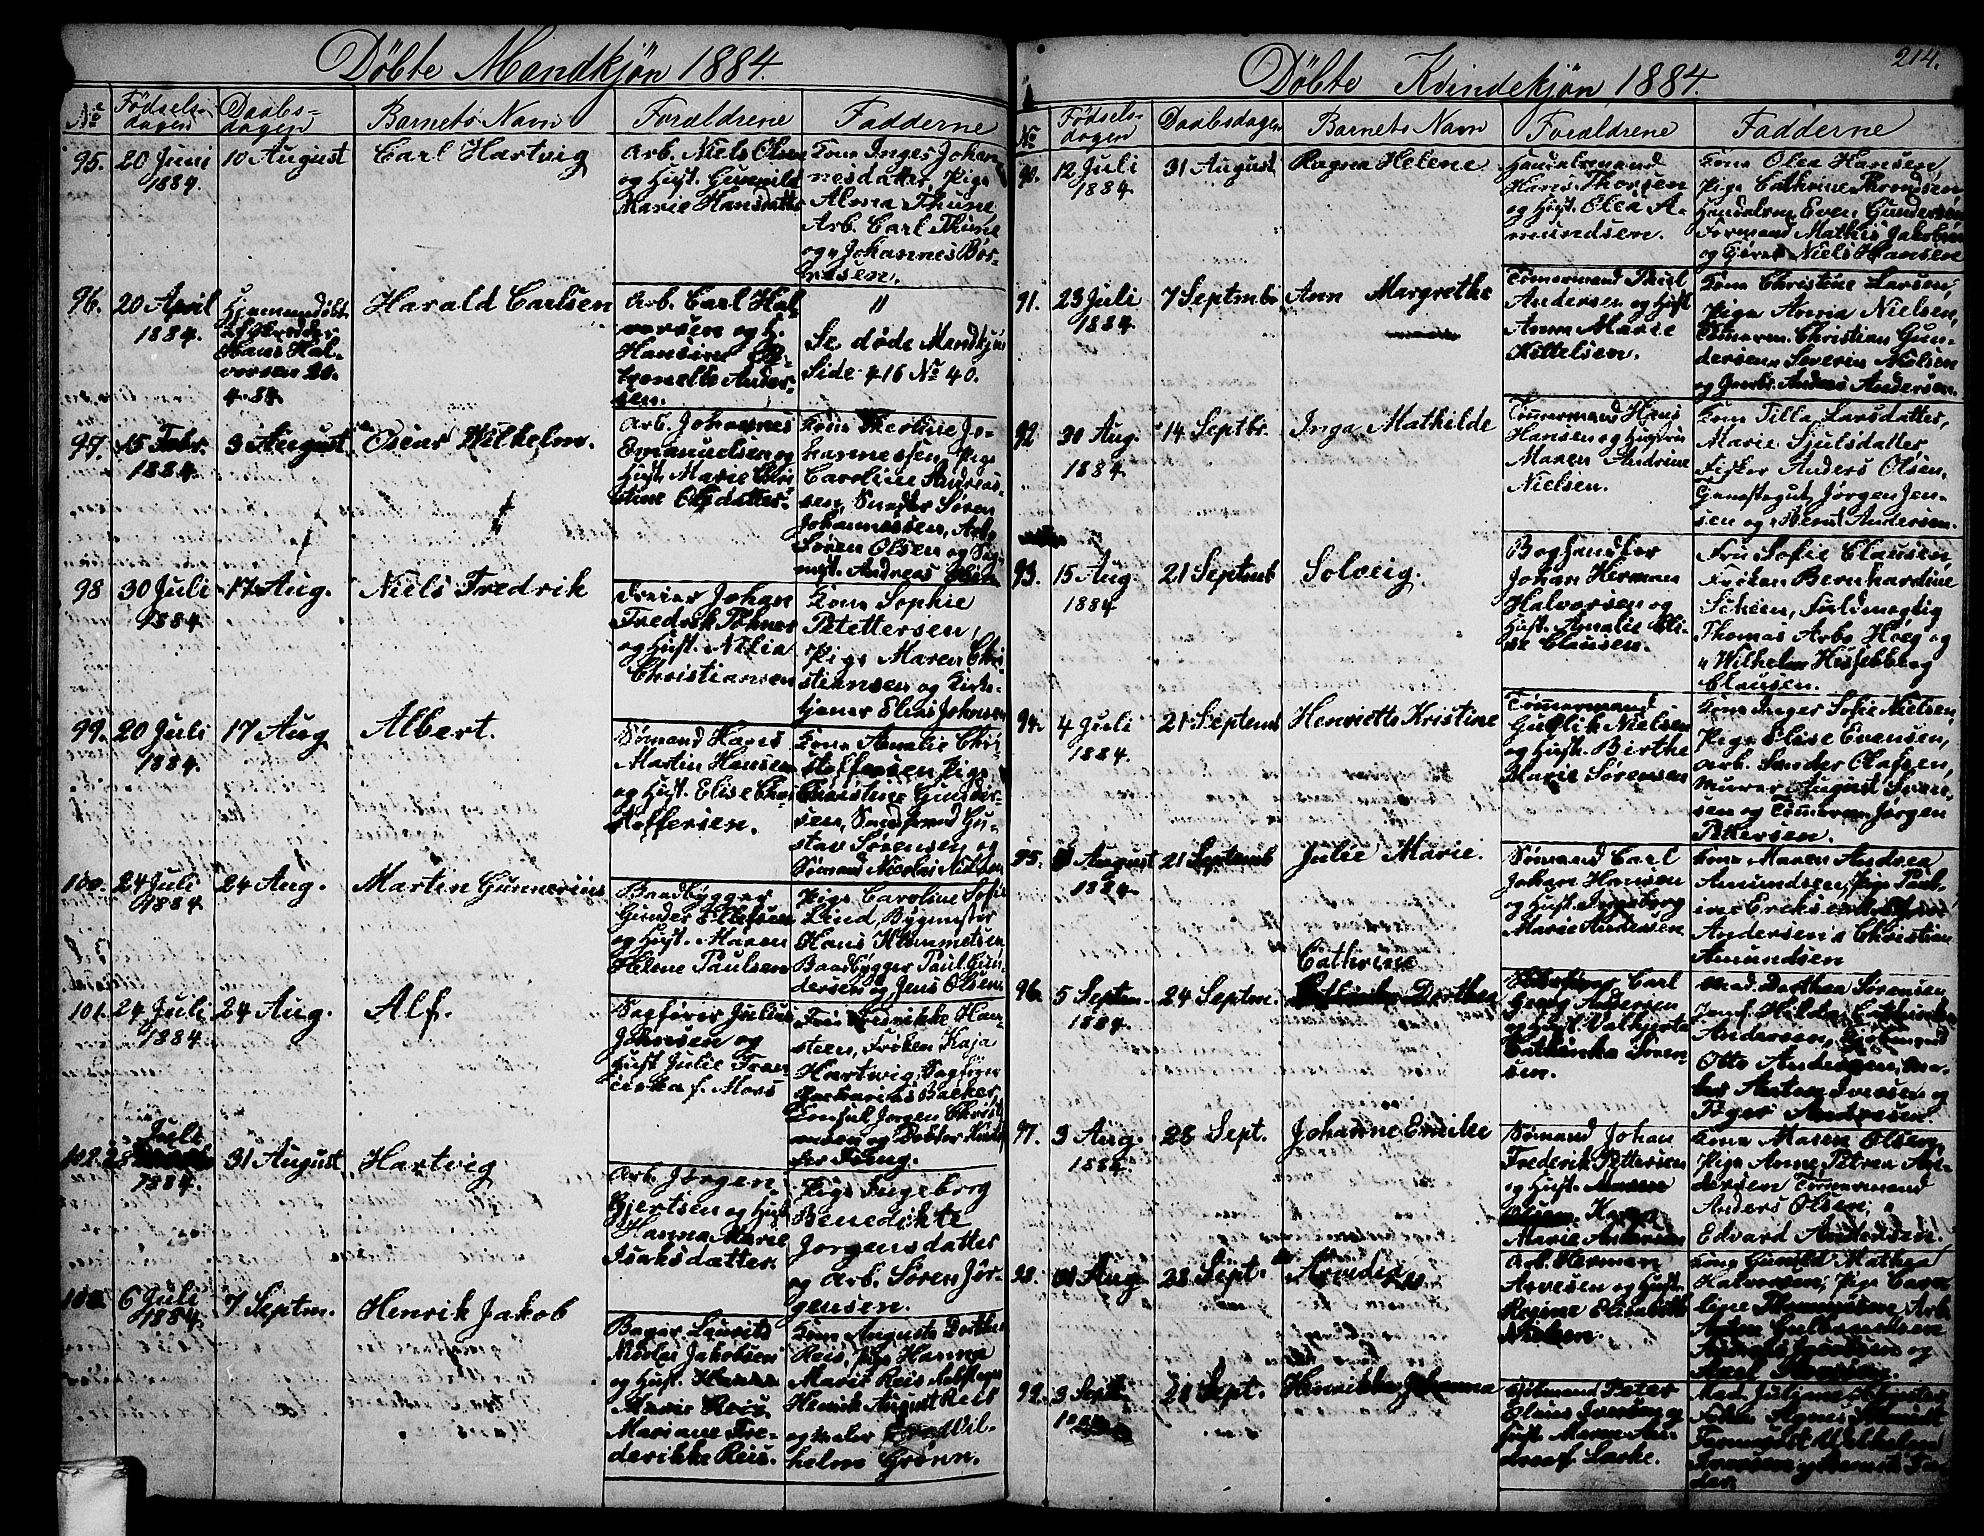 Döbte Mandkjön 1884.
No
Födsels-
dagen
Daabs-
dagen
Barnets Navn
Forældrene
Fadderne
95.
20 Juni
1884.
10 August
Carl Hartvig
Arb. Niels Olsen
og Hust. Gunnild
Marie Hansdatter
Kone Inger Johan-
nesdatter, Pige
Alma Thune,
Arb. Carl Thune
og Johannes Bör-
resen.
96.
20 April
1884.
Hjemmedöbt
Hans Hal-
vorsen 20.
4. 84.
Harald Carlsen
Arb. Carl Hal
vorsen og H.
Hansine
Ander-
sen.
"
Se döde Mandkjön
Side 416 No 40.
97.
15 Febr.
1884.
3 August
Oscar Wilhelm.
Arb. Johannes
Emanuelsen og
Hust. Marie Chri
stine Olsdatter.
Kone Theoline Jo-
hannessen, Pige
Caroline Andreas-
sen, Snedker Sören
Johannessen, Arb.
Sören Olsen og
Andreas
98
30 Juli
1884.
17 Aug.
Niels Fredrik
Dreier Johan
Fredrik
og Hust.
Christiansen
Kone Sophie
Petettersen,
Pige Maren Chri
stiansen og Kirke-
tjener Elias Johnsen
99.
20 Juli
1884.
17 Aug
Albert.
Sömand Hans
Martin Hansen
og Hust. Elise Chri
stoffersen.
Kone Amalie Chri-
stoffersen Pige
Christine Gunder-
sen, Gu-
stav Sörensen og
Sömand Nicolai Nielsen
100.
24 Juli
1884.
24 Aug.
Martin Gunnerius
Baadbygger
Gunder Ellefsen
og Hust. Maren
Helene Paulsen
Pige Caroline Sofie
Lind, Bygmester
Hans Klemmetsen
Baadbygger Paul Gun
dersen og Jens Olsen.
101.
24 Juli
1884.
24 Aug.
Alf.
Sagförer Julius
Johnsen og
Hust Julie Fran
ciska f. Moss
Fru Henrikke Hau-
steen, Fröken Kaja
Hartvig, Sagförer
Zacharias Backer,
Konsul Jörgen Christ
ansen og Doktor
102.
28
Juli
1884.
31 August
Hartvig
Arb. Jörgen
Bjertsen og Hust
Hanna Marie
Isaksdatter
Pige Ingeborg
Benedikte
Jorgensdatter
og Arb. Sören Jör-
gensen.
103.
6 Juli
1884.
7 Septm.
Henrik Jakob
Bager Laurits
Nicolai Jakobsen
og Hust.
Mariane Fre-
derikke Reis.
Kone Augusta Dorthea
Reis, Pige Hanna
Marie Reis
Henrik August Reis
og Maler Wil-
helm Grönn.
214.
Döbte Kvindekjön 1884.
No
Födsels-
dagen
Daabsdagen
Barnets Navn
Forældrene
Fadderne
90.
12 Juli
1884.
31 August
Ragna Helene
Handelsmand
Hans Thorsen
og Hust. Olea A-
mundsen.
Kone Olea Hansen,
Pige Cathrine Throndsen
Handelsm Even Gundersen
Formand Mathis Jakobsen
og Niels Hansen
91.
23 Juli
1884.
7 Septmbr
Ann Margrethe
Tömmermand Paul
Andersen og Hust
Anna Marie
Kittelsen.
Kone Christine Larsen,
Pige Anna Nielsen,
Tömmerm. Christian Gun-
dersen, Severin Nielsen
og Anders Andersen.
92
30 Aug.
1884.
14 Septbr.
Inga Mathilde
Tömmermand Hans
Hansen og Hustru
Maren Andrine
Nielsen.
Kone Tilla Larsdatter,
Marie Sjulsdatter
Fisker Anders Olsen,
Jörgen Jen-
sen og Bernt Andersen.
93.
15 Aug.
1884
21 Septmb
Solveig.
Boghandler
Johan Herman
Halvorsen og
Hust. Amalie Eli-
se Clausen.
Fru Sofie Clausen,
Fröken Bernhardine
Scheen, Fuldmægtig
Thomas Arbo Höeg og
" Wilhelm
Clausen.
94.
4 Juli
1884.
21 Septemb
Henriette Kristine
Tömmermand
Gullik Nielsen
og Hust. Birthe
Marie Sörensen
Kone Inger Sofie Nielsen,
Pige Elise Evensen,
Arb. Sander Olafsen,
Murer August Sven-
sen og Tömmerm. Jörgen
Pettersen.
95.
August
1884.
21 Septemb
Julie Marie.
Sömand Carl
Johan Hansen
og Hust. Ingeborg
Marie Andersen
Kone Maren Andrea
Amundsen, Pige Paul-
ine Ericksen
Andersen " Christian
Amundsen
96.
5 Septm.
1884.
24 Septm.
Cathrine
Dorthea
Carl
Georg Andersen
og Hust. Valhjerta
Cathinka Sören-
sen.
Mad. Dorthea Sörensen
Jomf. Hilda Cathinka
Andersen,
Otto Andersen, Ma-
ler Anton Iversen og
Peder Andersen.
97.
3 Aug.
1884.
28 Sept.
Johanne Emilie
Sömand Johan
Frederik Pettersen
og Hust.
Karen
Marie Andersen
Kone Maren Olsen,
Pige Anne Petrea An-
dersen Tömmermand
Anders Olsen, "
Edvard Andersen.
98.
Aug.
28 Sept.
Arb. Herman
Arvesen og Hust.
Regine Elisabeth
Nielsen.
Kone Gunild Mathea
Halvorsen, Pige Caro
line Arb.
Anton Gulbrandsen
Andreas og
Axel
99.
3 Sept.
28 Sept.
Henrikke Johanna
Peter
Claus Iversen og
Hust Maren An-
drea f. Larke.
Mad.
Agnes Schmidt